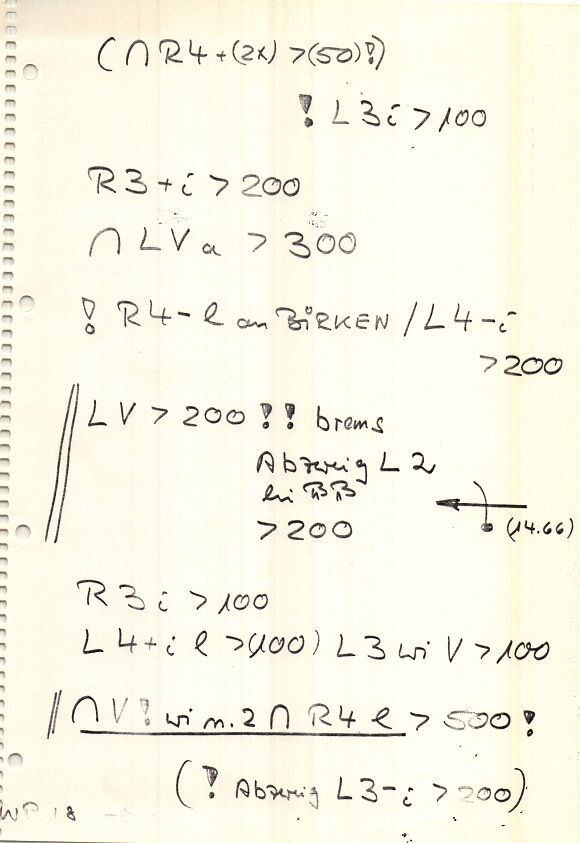 (∩ R4+(2x) >(50)!)
! L3i >100
R3+i >200
∩ LVa >300
! R4-l an BIRKEN / L4-i
>200
LV >200 !! brems
Abzweig L2
bei BB
>200
(14.66)
R3i >100
L4+i l >(100) L3 wi V >100
∩V! wi m. 2∩ R4 l >500!
(! Abzweig L3-i >200)
WP 18